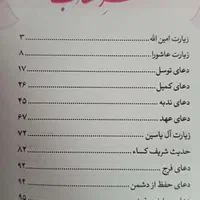 زیارت امین الله ۳
زیارت عاشورا ۸
دعای توسل ۱۷
دعای کمیل ۲۶
دعای ندبه ۴۵
دعای عهد ۶۷
زیارت آل یاسین ۷۲
حدیث شریف کساء ۸۲
دعای فرج ۹۲
دعای حفظ از دشمن ۹۴
۹۵